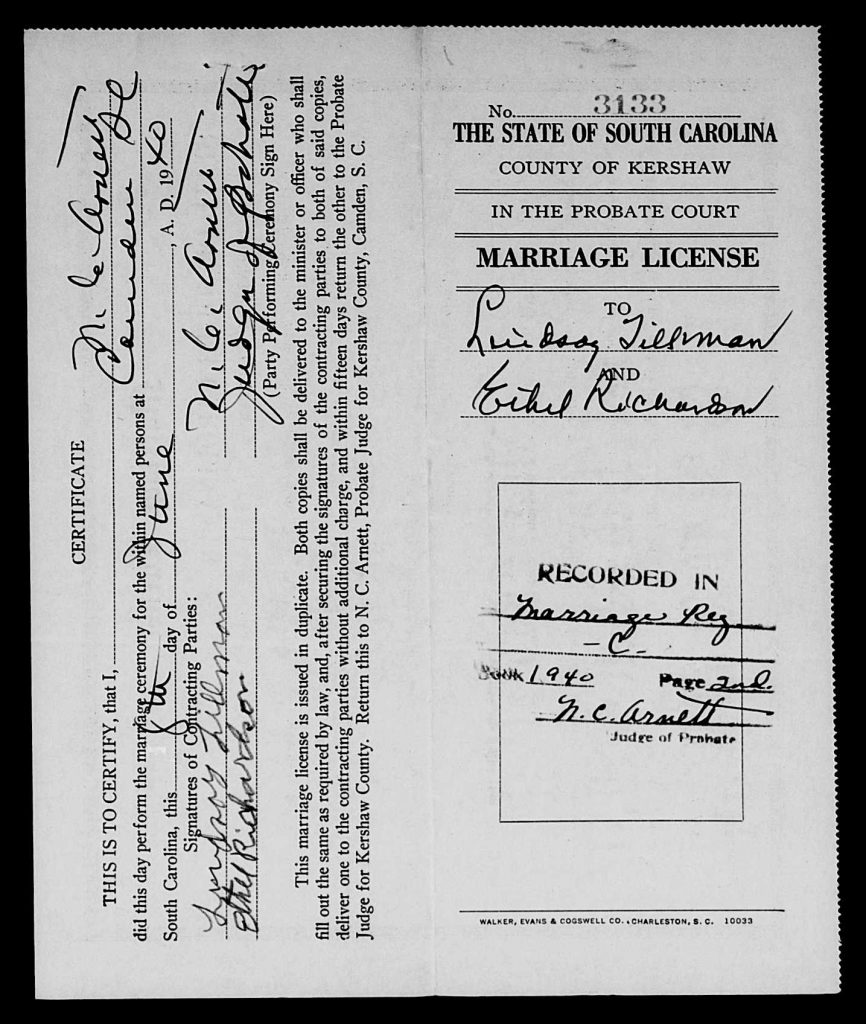 CERTIFICATE
THIS IS TO CERTIFY, that I, N. C. Arnett
did this day perform the marriage ceremony for the within named persons at Camden SC
South Carolina, this 8th day of June, A. D. 1940
Signatures of Contracting Parties:
Lindsay Tillman N. C. Arnett
Ethel Richardson Judge of Probate
(Party Performing Ceremony Sign Here)
This marriage license is issued in duplicate. Both copies shall be delivered to the minister or officer who shall
fill out the same as required by law, and, after securing the signatures of the contracting parties to both of said copies,
deliver one to the contracting parties without additional charge, and within fifteen days return the other to the Probate
Judge for Kershaw County. Return this to N. C. Arnett, Probate Judge for Kershaw County, Camden, S. C.
No. 3133
THE STATE OF SOUTH CAROLINA
COUNTY OF KERSHAW
IN THE PROBATE COURT
MARRIAGE LICENSE
TO
Lindsay Tillman
AND
Ethel Richardson
RECORDED IN
Marriage Reg
- C. -
Book 1940 Page 2nd.
N. C. Arnett
Judge of Probate
WALKER, EVANS & COGSWELL CO., CHARLESTON, S. C. 10033